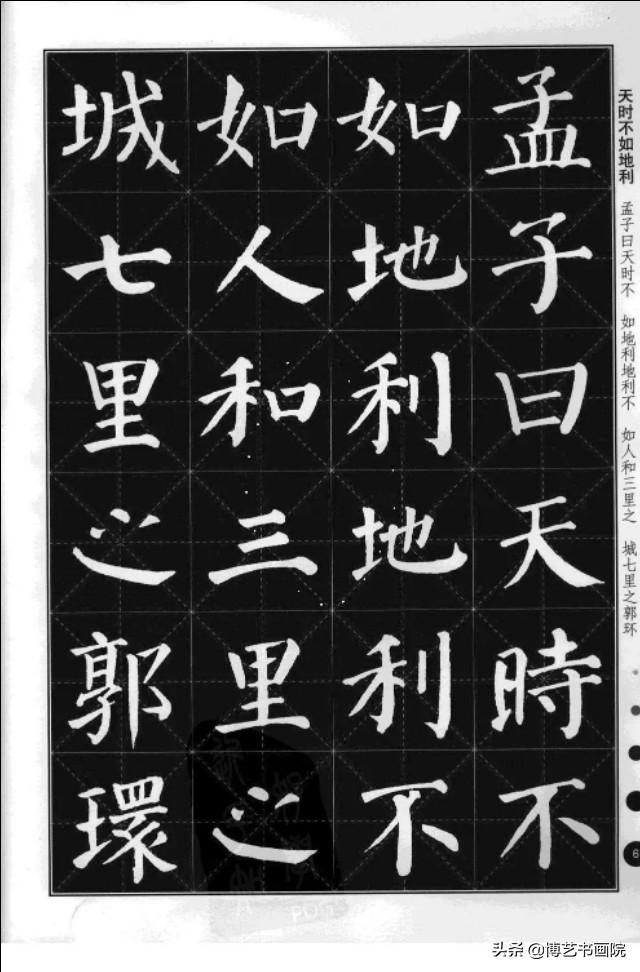 天时不如地利 孟子曰天时不 如地利地利不 如人和三里之 城七里之郭环
孟子曰天時不
如地利地利不
如人和三里之
城七里之郭環
6
头条 @博艺书画院